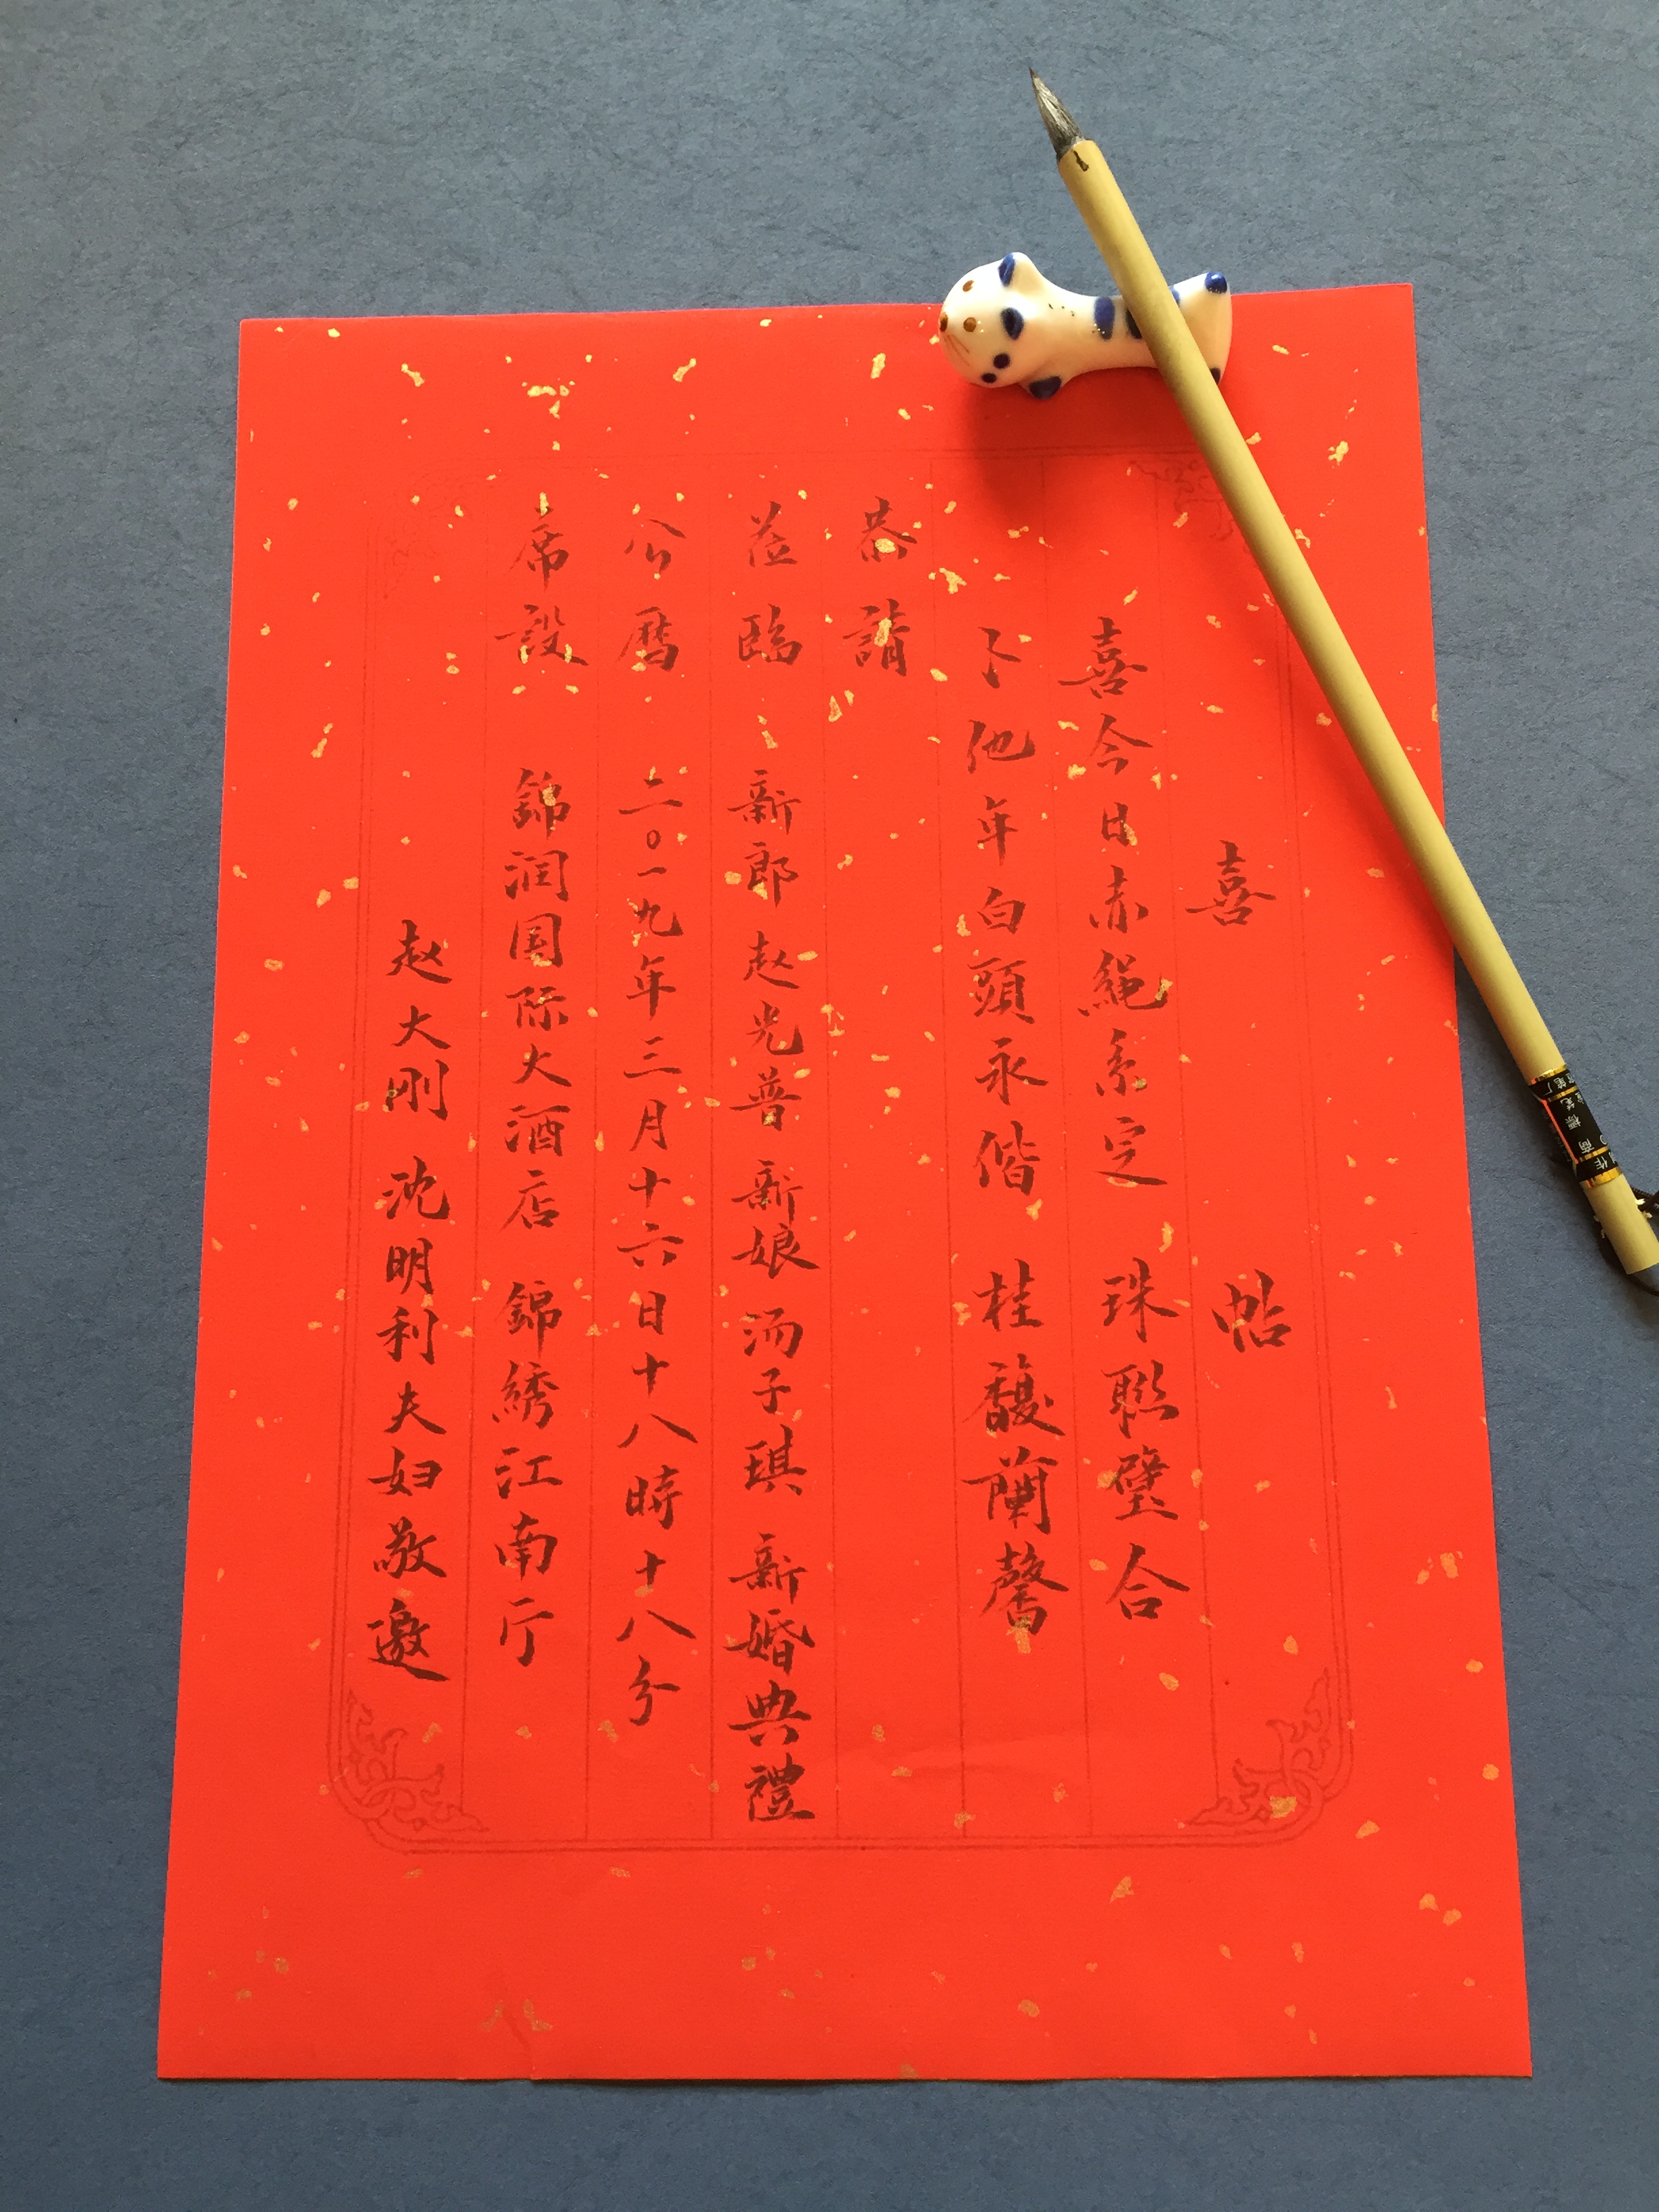 喜 帖
喜今日赤繩系定 珠聯璧合
卜他年白頭永偕 桂馥蘭馨
恭請
莅臨 新郎赵光普 新娘汤子琪 新婚典禮
公曆 二〇一九年三月十六日十八時十八分
席設 錦润国际大酒店 錦綉江南厅
赵大刚 沈明利夫妇敬邀